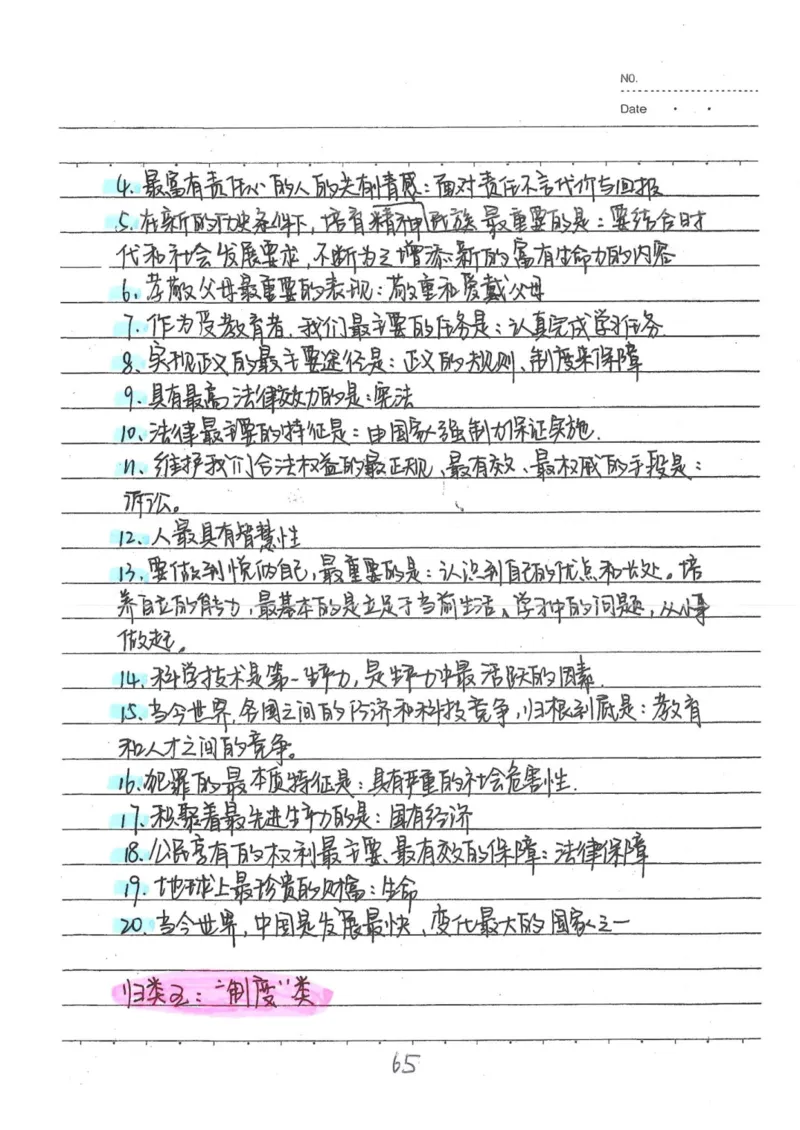 NO.
Date
4. 最富有责任心的人的共有情感：面对责任不言代价与回报
5. 在新的历史条件下，培育精神民族最重要的是：要结合时
代和社会发展要求，不断为之增添新的富有生命力的内容
6、孝敬父母最重要的表现：敬重和爱戴父母
7、作为受教育者，我们最主要的任务是：认真完成学习任务.
8、实现正义的最主要途径是：正义的规则、制度来保障
9、具有最高法律效力的是：宪法
10、法律最主要的特征是：由国家强制力保证实施.
11、维护我们合法权益的最正规、最有效、最权威的手段是：
诉讼。
12、人最具有智慧性
13、要做到悦纳自己，最重要的是：认识到自己的优点和长处。培
养自立的能力，最基本的是立足于当前生活、学习中的问题，从小事
做起。
14、科学技术是第一生产力，是生产力中最活跃的因素.
15、当今世界，各国之间的经济和科技竞争，归根到底是：教育
和人才之间的竞争。
16、犯罪的最本质特征是：具有严重的社会危害性.
17、积聚着最先进生产力的是：国有经济
18、公民享有的权利最主要、最有效的保障：法律保障
19、地球上最珍贵的财富：生命
20、当今世界，中国是发展最快、变化最大的国家之一
归类五：“制度”类
65